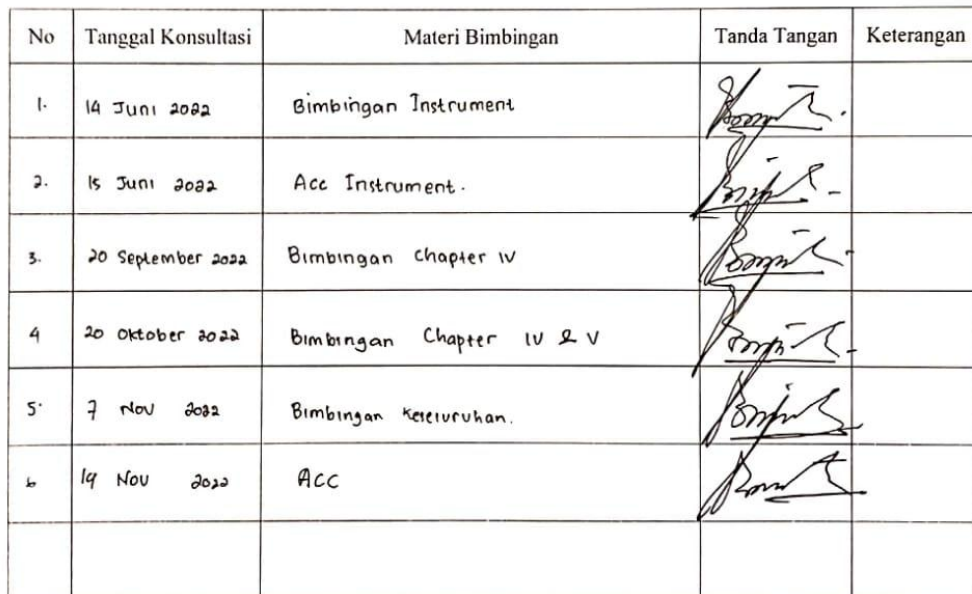 No Tanggal Konsultasi Materi Bimbingan Tanda Tangan Keterangan
1. 14 Juni 2022 Bimbingan Instrument
2. 15 Juni 2022 Acc Instrument.
3. 20 September 2022 Bimbingan Chapter IV
4 20 Oktober 2022 Bimbingan Chapter IV & V
5. 7 Nov 2022 Bimbingan Keseluruhan.
6 19 Nov 2022 ACC